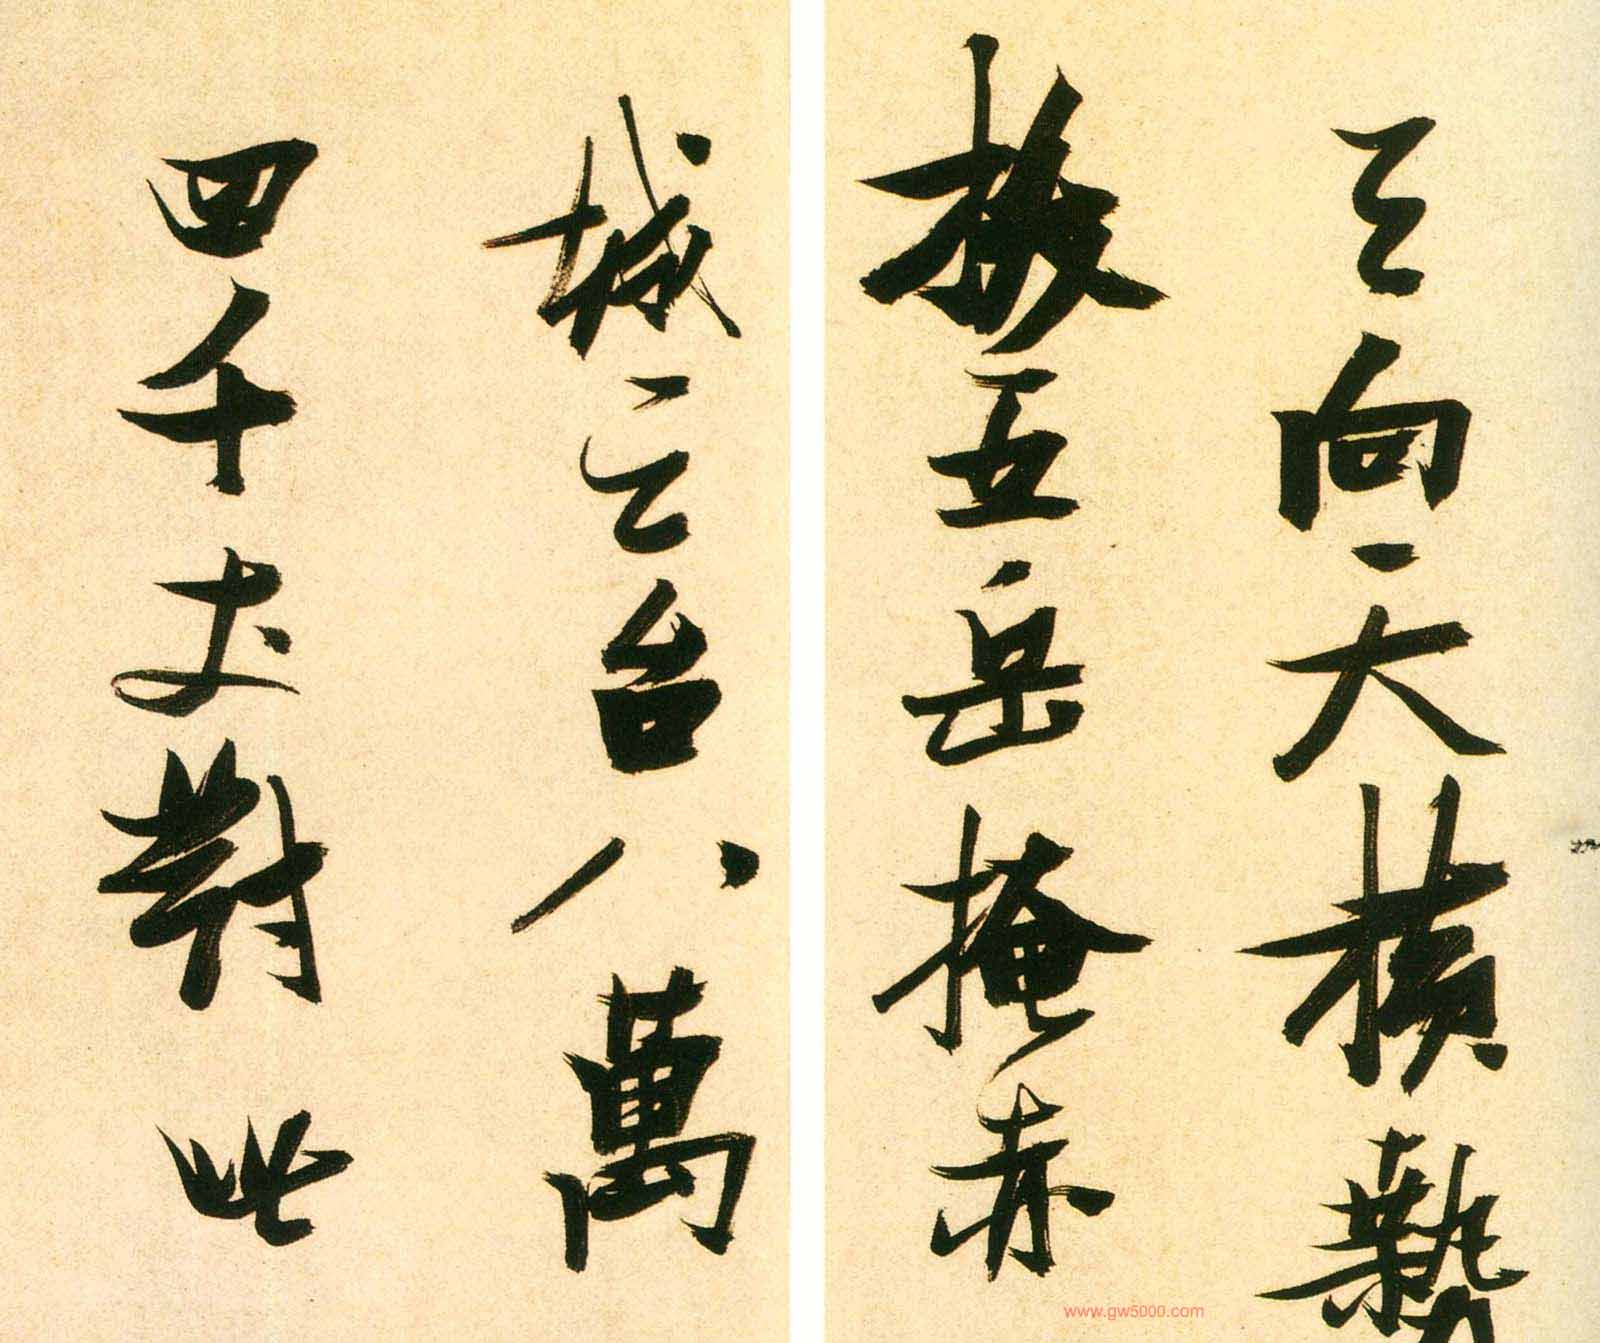 天向天横勢
拔五岳掩赤
城天台八萬
四千丈對此
www.gw5000.com